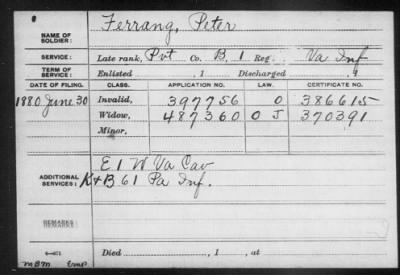 NAME OF SOLDIER: Ferrang, Peter
SERVICE: Late rank, Pvt Co. B, 1 Reg Va Inf
TERM OF SERVICE: Enlisted , 1 Discharged , 1
DATE OF FILING. CLASS. APPLICATION NO. LAW. CERTIFICATE NO.
1880 June 30 Invalid, 397756 O 386615
Widow, 487360 O J 370391
Minor,
ADDITIONAL SERVICES: E 1 W Va Cav
K+B 61 Pa Inf.
REMARKS
Died , 1 , at
MBM Emp